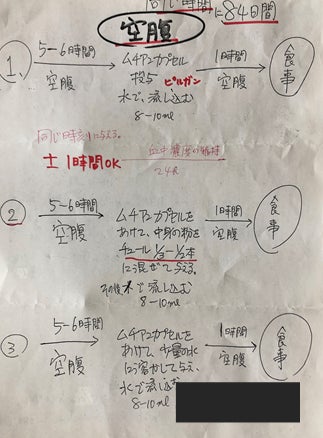 同じ時間に84日間
空腹
①
5-6時間
空腹
ムチアンカプセル
投与 ピルガン
水で流し込む
8-10ml
1時間
空腹
食事
同じ時刻に与える。
± 1時間OK
血中濃度の維持
24h
②
5-6時間
空腹
ムチアンカプセルを
あけて、中身の粉を
チュール1/3~1/2本
に混ぜて与える。
その後水で流し込む
8-10ml
1時間
空腹
食事
③
5-6時間
空腹
ムチアンカプセルを
あけて、少量の水
に溶かして与え、
水で流し込む
8-10ml
1時間
空腹
食事